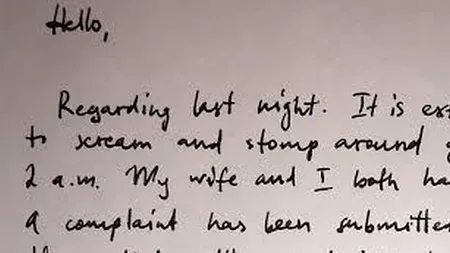 Hello,
Regarding last night. It is
to scream and stomp around
2 a.m. My wife and I both
a complaint has been